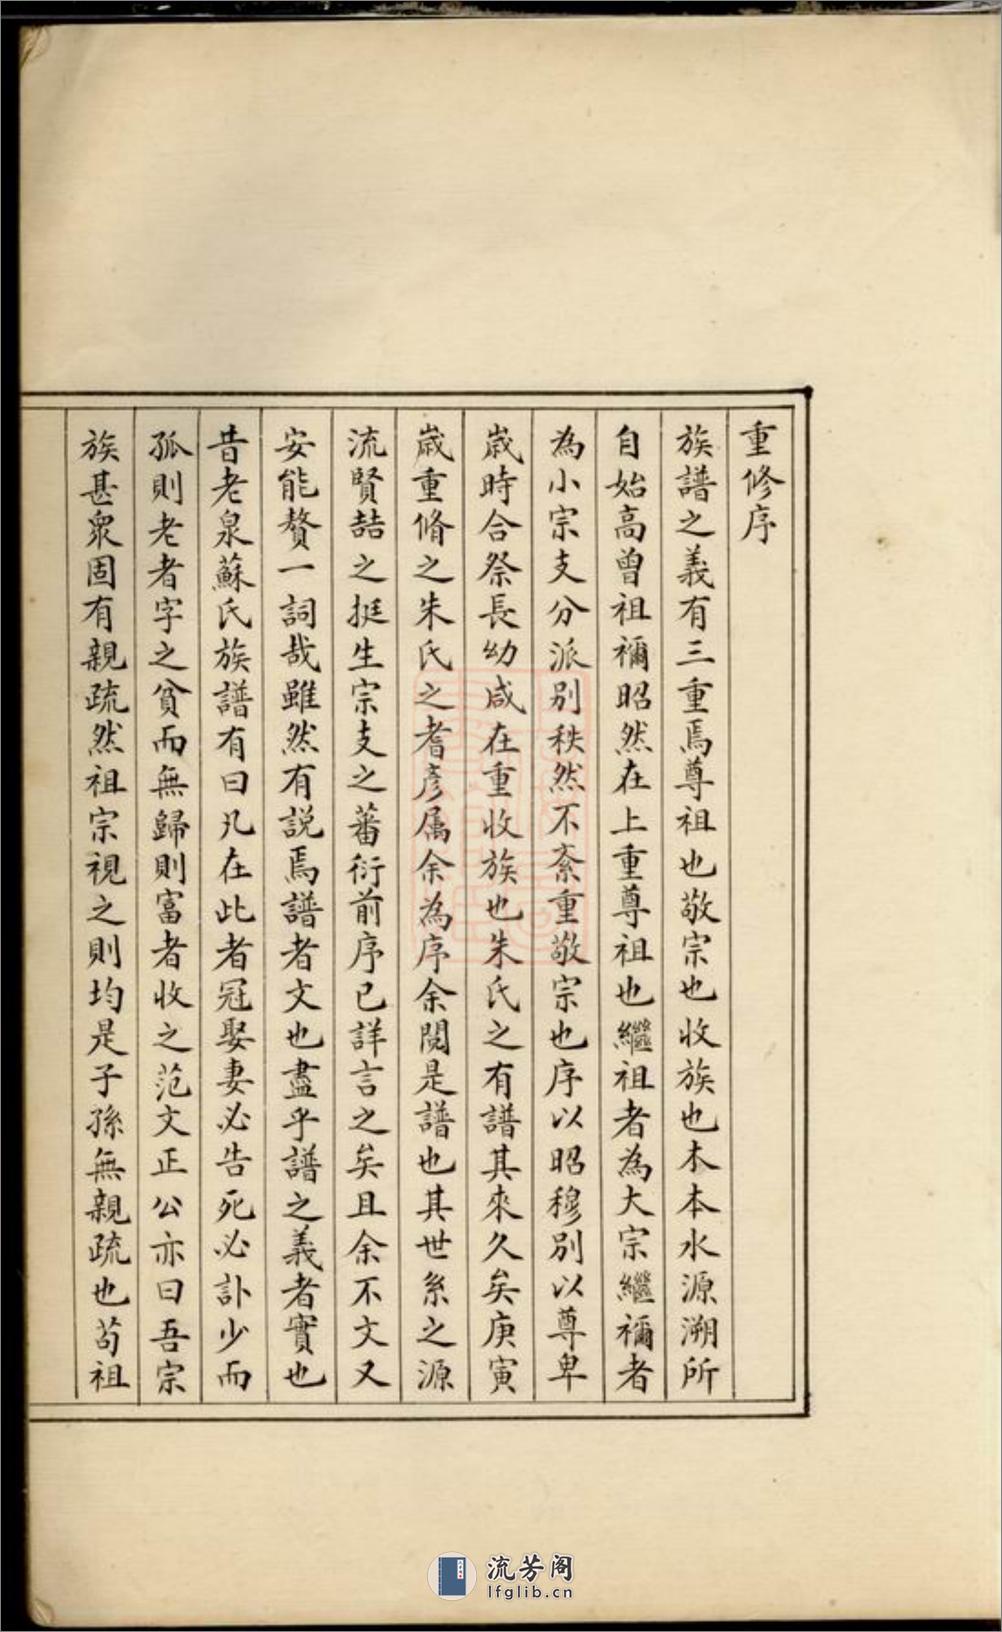 重修序
族譜之義有三重焉尊祖也敬宗也收族也木本水源溯所
自始高曾祖禰昭然在上重尊祖也繼祖者為大宗繼禰者
為小宗支分派別秩然不紊重敬宗也序以昭穆別以尊卑
歲時合祭長幼咸在重收族也朱氏之有譜其來久矣庚寅
歲重脩之朱氏之耆彥属余為序余閱是譜也其世系之源
流賢喆之挺生宗支之蕃衍前序已詳言之矣且余不文又
安能贅一詞哉雖然有説焉譜者文也盡乎譜之義者實也
昔老泉蘇氏族譜有曰凡在此者冠娶妻必告死必訃少而
孤則老者字之貧而無歸則富者收之范文正公亦曰吾宗
族甚衆固有親疏然祖宗視之則均是子孫無親疏也苟祖
流芳阁
lfglib.cn